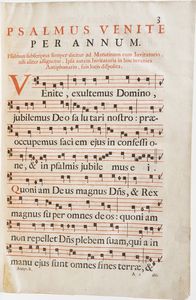 3
PSALMUS VENITE
PER ANNUM.
Psalmus subscriptus semper dicitur ad Matutinum cum Invitatorio,
nisi aliter assignetur. Ipsa autem Invitatoria in hoc invenies
Antiphonario, suis locis disposita.
VEnite, exultemus Domino,
jubilemus Deo salutari nostro: præ-
occupemus faciem ejus in confessio-
ne, & in psalmis jubilemus ei.
Quoniam Deus magnus Dñs, & Rex
magnus super omnes deos: quoniam
non repellet Dñs plebem suam, quia in
manu ejus sunt omnes fines terræ, &